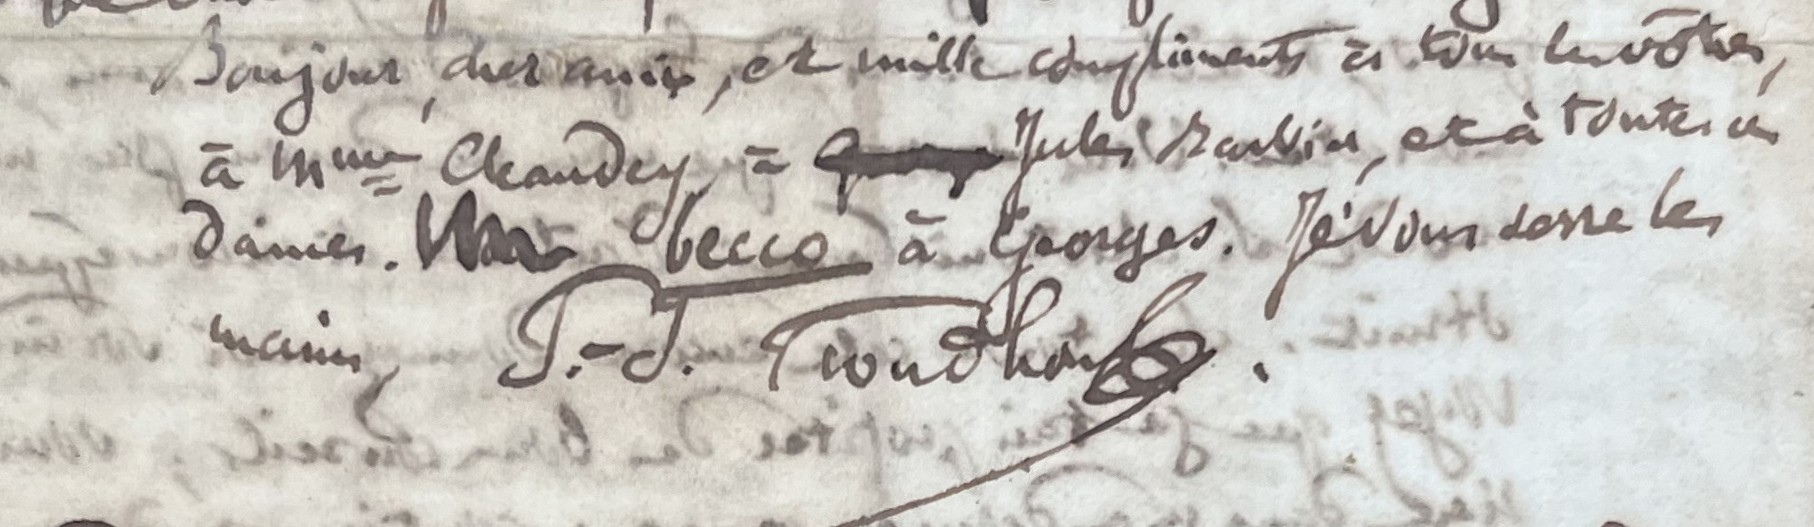 Bonjour, cher ami, et mille compliments à tous les vôtres,
à Mme Chaudey, à Jules et à toutes ces
dames. becco à Georges. Je vous serre les
mains,
P.-J. Proudhon.